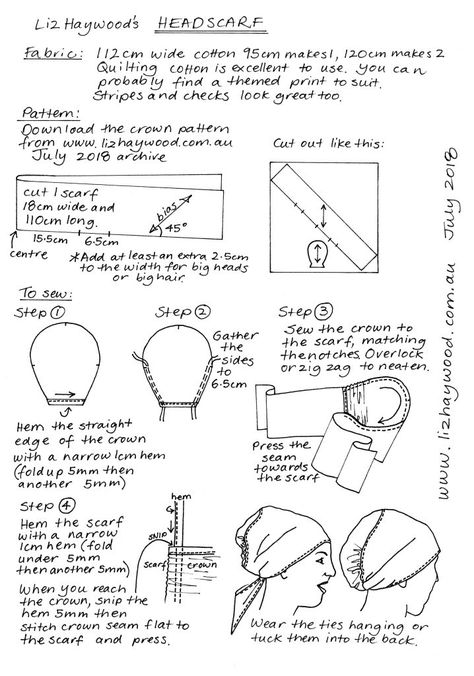 Liz Haywood's HEADSCARF
Fabric: 112cm wide cotton 95cm makes 1, 120cm makes 2
Quilting cotton is excellent to use. You can
probably find a themed print to suit.
Stripes and checks look great too.
Pattern:
Download the crown pattern
from www.lizhaywood.com.au
July 2018 archive
cut 1 scarf
18cm wide and
110cm long.
bias
45°
15.5cm 6.5cm
centre
*Add at least an extra 2.5cm
to the width for big heads
or big hair.
Cut out like this:
To sew:
Step 1
Hem the straight
edge of the crown
with a narrow 1cm hem
(fold up 5mm then
another 5mm)
Step 2
Gather
the
sides
to
6.5cm
Step 3
Sew the crown to
the scarf, matching
the notches. Overlock
or zig zag to neaten.
Press the
seam
towards
the scarf
Step 4
Hem the scarf
with a narrow
1cm hem (fold
under 5mm
then another 5mm)
When you reach
the crown, snip the
hem 5mm then
stitch crown seam flat to
the scarf and press.
hem
snip
scarf
crown
Wear the ties hanging or
tuck them into the back.
www.lizhaywood.com.au July 2018